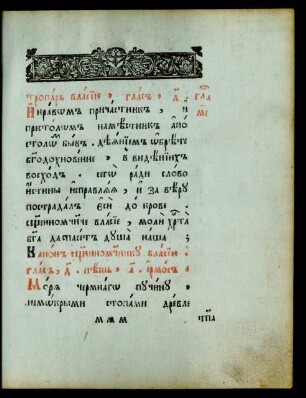 тропарь власїю, гласъ, д҃. гла
И нравѡмъ причастникъ, и
ме
престолѡмъ намѣстникъ апо
столѡ бывъ. дѣянїемъ ѡбрѣте
бг҃одохновенне, въ видѣнїихъ
восходъ. сегѡ ради слово
истины исправляя, и за вѣру
пострадалъ єси до крове.
сщ҃енномч҃ниче власїе, моли хрⷭ҇та
бг҃а да спасетъ душа наша
Канонъ сщ҃енномч҃нику власїю.
гласъ, д҃. пѣснь, а҃. ірмосъ.
Моря чермнагѡ пучину,
немокрыми стопами древле